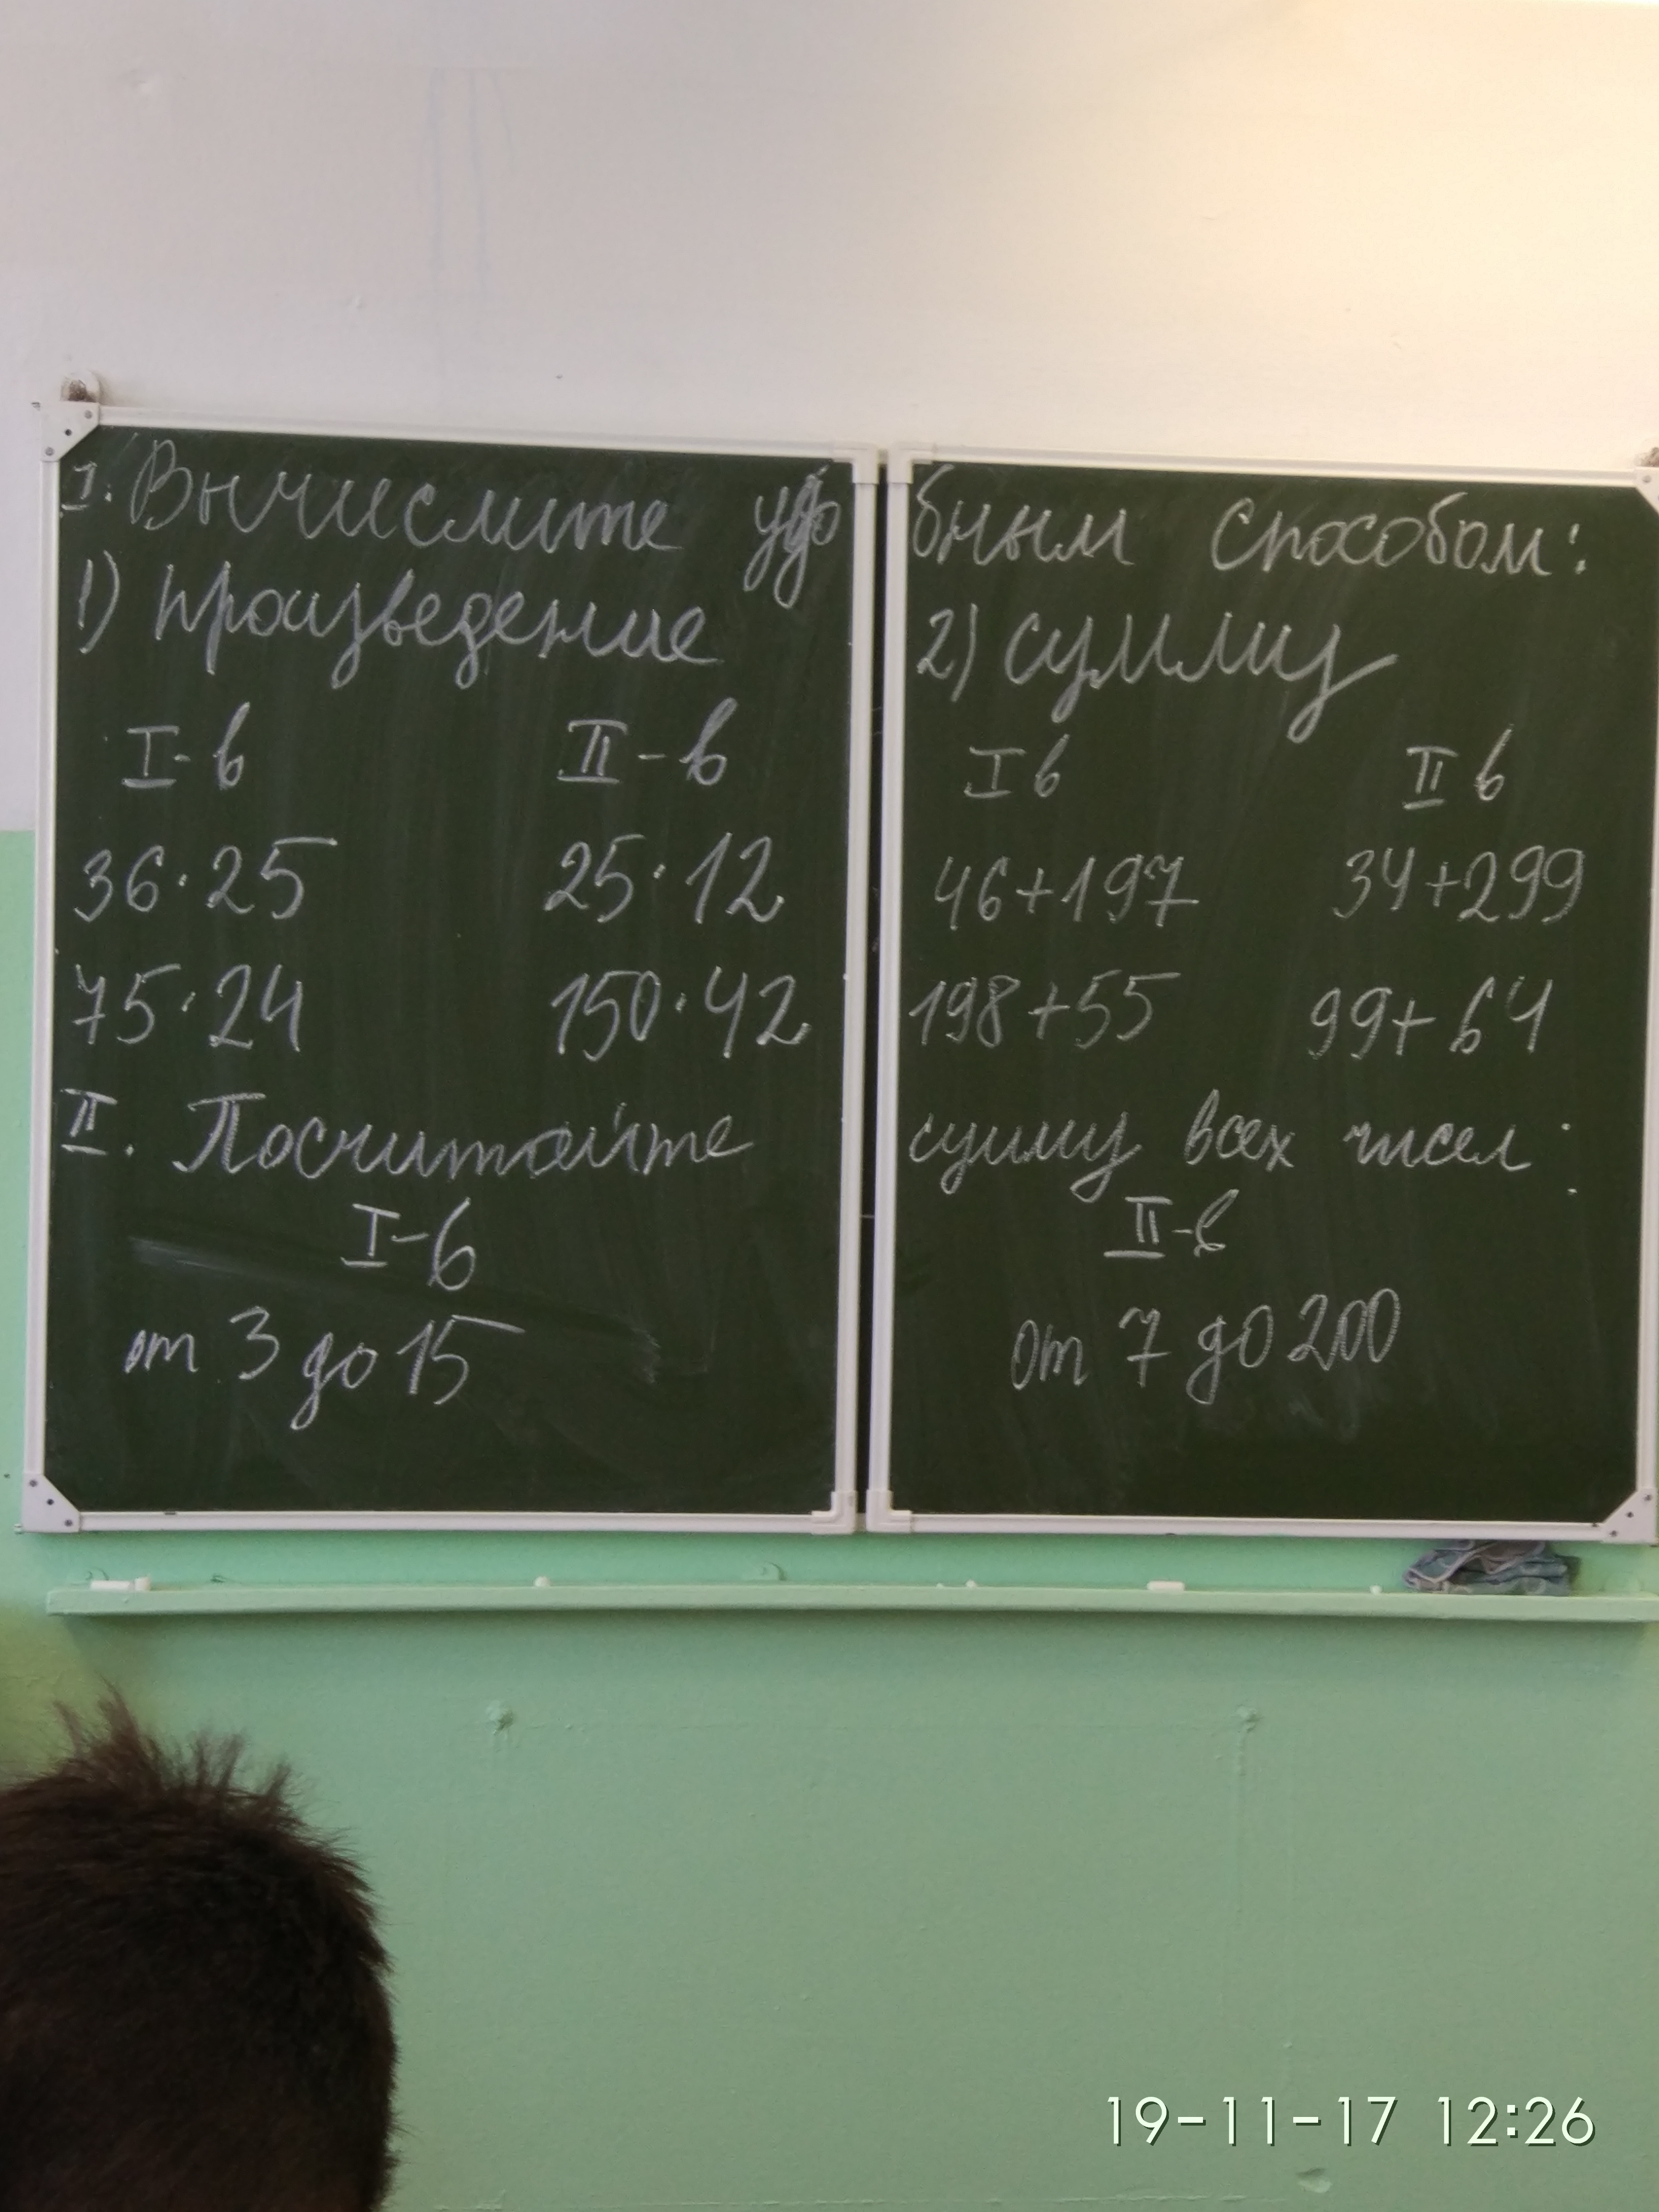 I. Вычислите удобным способом:
1) произведение
I-в II-в
36·25 25·12
75·24 150·42
2) сумму
I в II в
46+197 34+299
198+55 99+64
II. Посчитайте сумму всех чисел:
I-в II-в
от 3 до 15 от 7 до 200
19-11-17 12:26